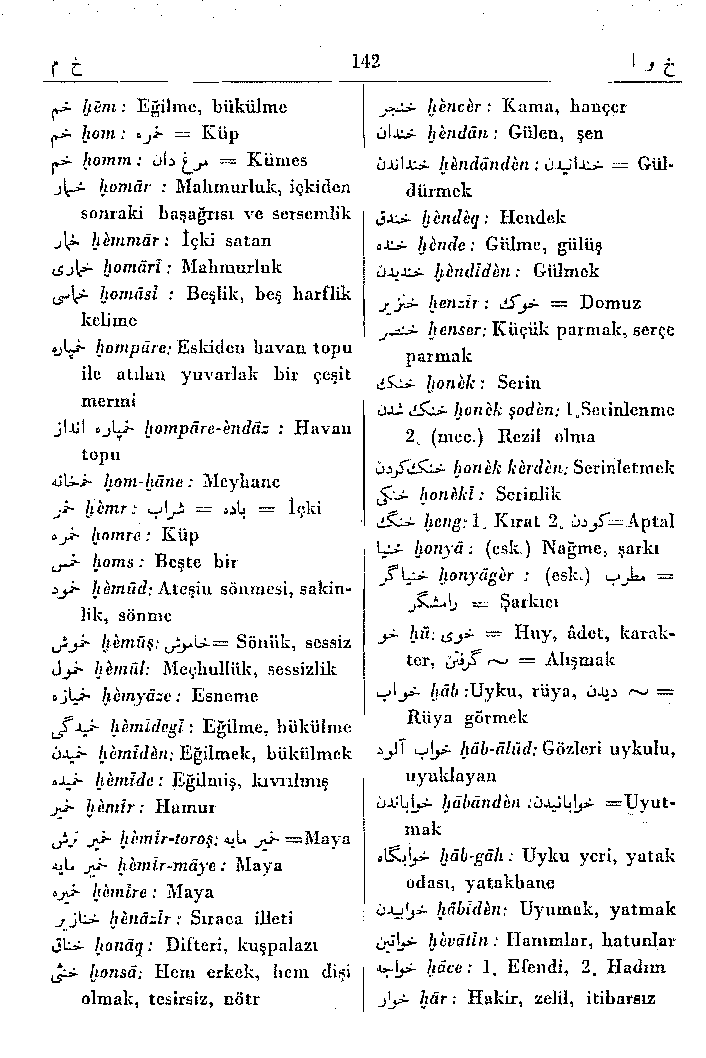 خ م
142
خ و ا
خم ḫèm : Eğilme, bükülme
خم ḫom : خمره = Küp
خم ḫomm : مرغ دان = Kümes
خمار ḫomār : Mahmurluk, içkiden
sonraki başağrısı ve sersemlik
خمار ḫèmmār : İçki satan
خماری ḫomārī : Mahmurluk
خماسی ḫomāsī : Beşlik, beş harflik
kelime
خمپاره ḫompāre: Eskiden havan topu
ile atılan yuvarlak bir çeşit
mermi
خمپاره انداز ḫompāre-èndāz : Havan
topu
خمخانه ḫom-ḫāne : Meyhane
خمر ḫèmr : شراب = باده = İçki
خمره ḫomre : Küp
خمس ḫoms : Beşte bir
خمود ḫèmūd: Ateşin sönmesi, sakin-
lik, sönme
خموش ḫèmūş: خاموش = Sönük, sessiz
خمول ḫèmūl: Meçhullük, sessizlik
خمیازه ḫèmyāze : Esneme
خمیدگی ḫèmīdegī : Eğilme, bükülme
خمیدن ḫèmīdèn: Eğilmek, bükülmek
خمیده ḫèmīde : Eğilmiş, kıvrılmış
خمیر ḫèmīr : Hamur
خمیر ترش ḫèmīr-toroş: خمیر مایه = Maya
خمیر مایه ḫèmīr-māye : Maya
خمیره ḫèmīre : Maya
خنازیر ḫènāzīr : Sıraca illeti
خناق ḫonāq : Difteri, kuşpalazı
خنثی ḫonsā: Hem erkek, hem dişi
olmak, tesirsiz, nötr
خنجر ḫèncèr : Kama, hançer
خندان ḫèndān : Gülen, şen
خنداندن ḫèndāndèn : خندانیدن = Gül-
dürmek
خندق ḫèndèq : Hendek
خنده ḫènde : Gülme, gülüş
خندیدن ḫèndīdèn : Gülmek
خنزیر ḫenzīr : خوک = Domuz
خنصر ḫenser: Küçük parmak, serçe
parmak
خنک ḫonèk : Serin
خنک شدن ḫonèk şodèn: 1. Serinlenme
2. (mec.) Rezil olma
خنک کردن ḫonèk kèrdèn: Serinletmek
خنکی ḫonèkī : Serinlik
خنگ ḫeng: 1. Kırat 2. کودن = Aptal
خنیا ḫonyā : (esk.) Nağme, şarkı
خنیاگر ḫonyāgèr : (esk.) مطرب =
رامشگر = Şarkıcı
خو ḫū : خوی = Huy, âdet, karak-
ter, گرفتن ~ = Alışmak
خواب ḫāb : Uyku, rüya, دیدن ~ =
Rüya görmek
خواب آلود ḫāb-ālūd: Gözleri uykulu,
uyuklayan
خواباندن ḫābāndèn : خوابانیدن = Uyut-
mak
خوابگاه ḫāb-gāh : Uyku yeri, yatak
odası, yatakhane
خوابیدن ḫābīdèn: Uyumak, yatmak
خواتین ḫèvātīn : Hanımlar, hatunlar
خواجه ḫāce : 1. Efendi, 2. Hadım
خوار ḫār : Hakir, zelil, itibarsız